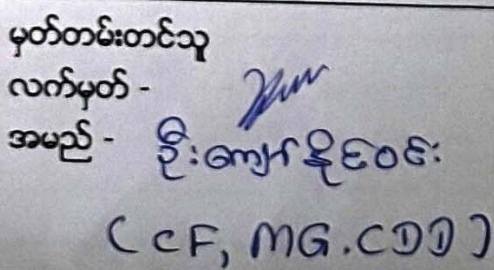 မှတ်တမ်းတင်သူ
လက်မှတ် -
အမည် - ဦးကျော်နိုင်ဝင်း
(CF, MG.CDD)